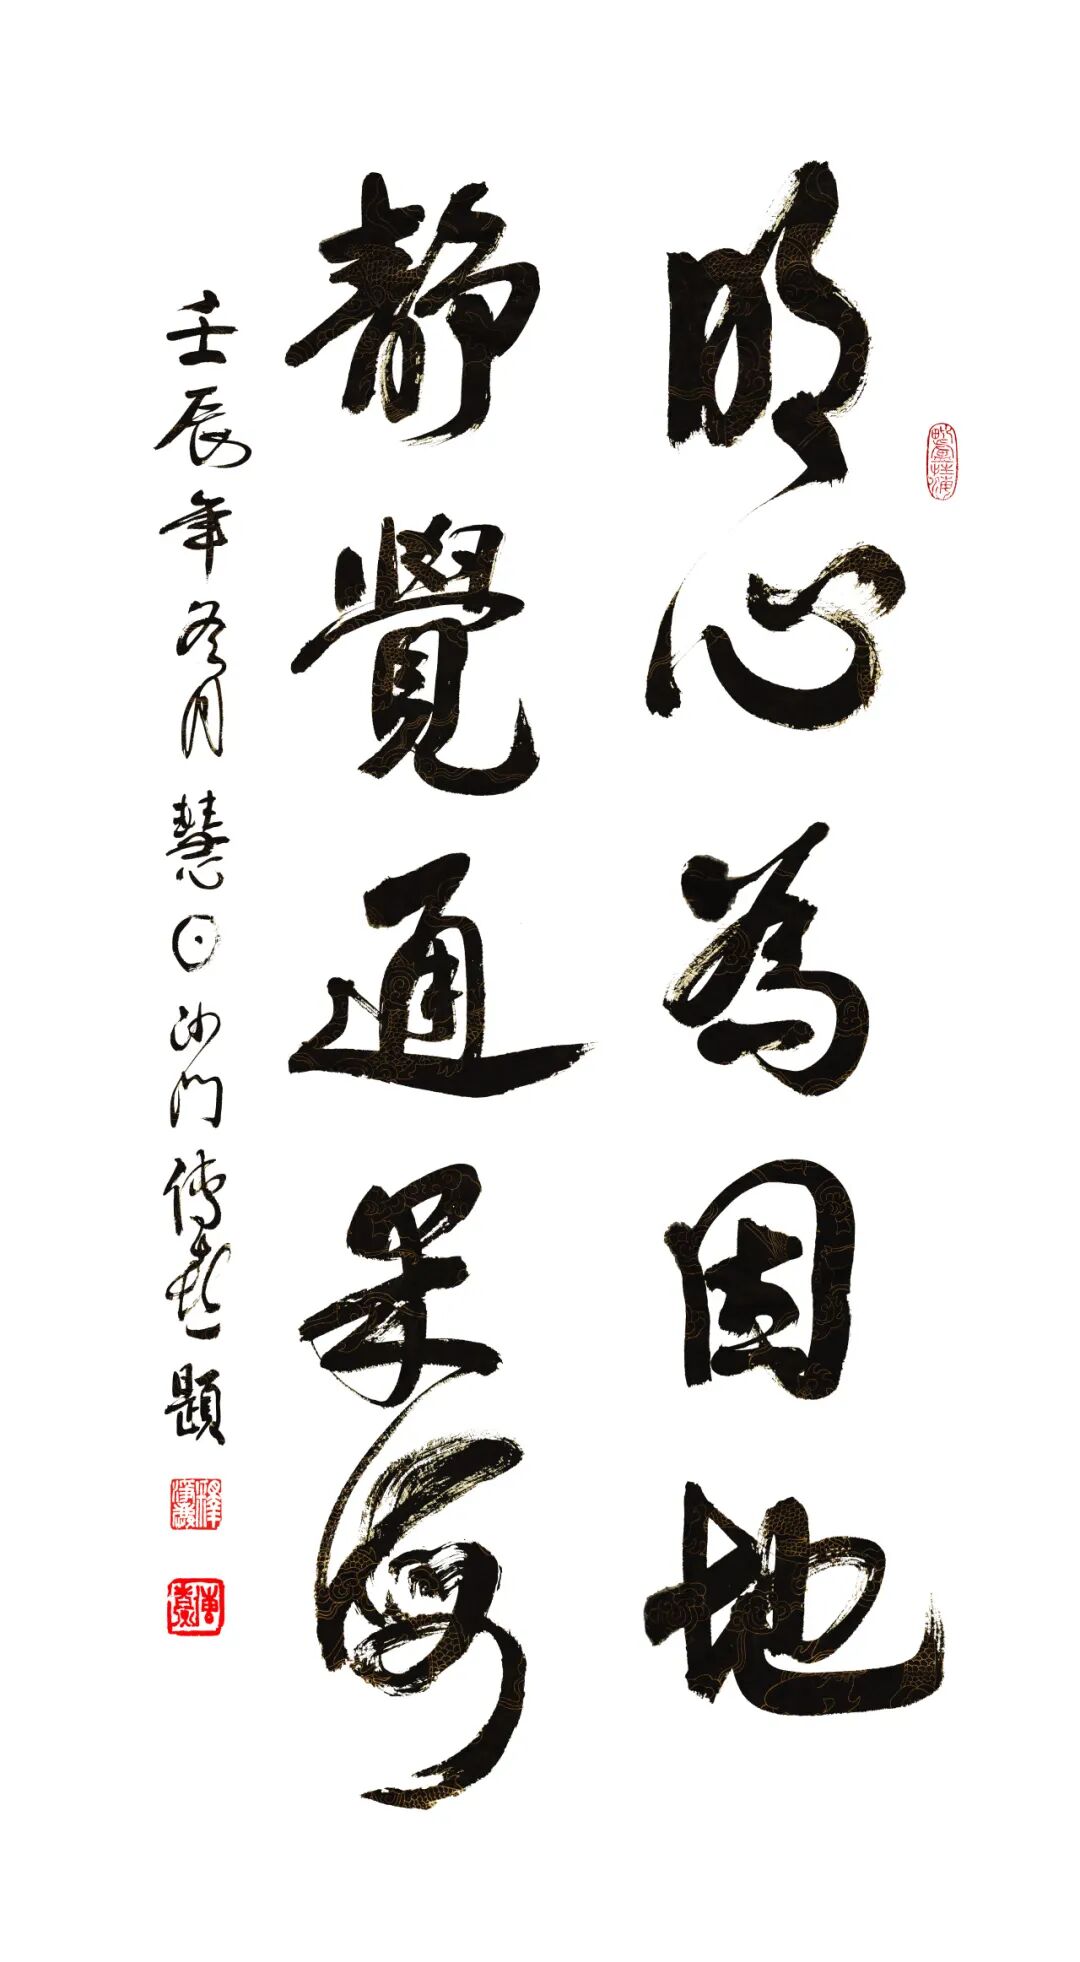 明心為因地
靜覺通果海
壬辰年冬月慧日沙門傳喜題